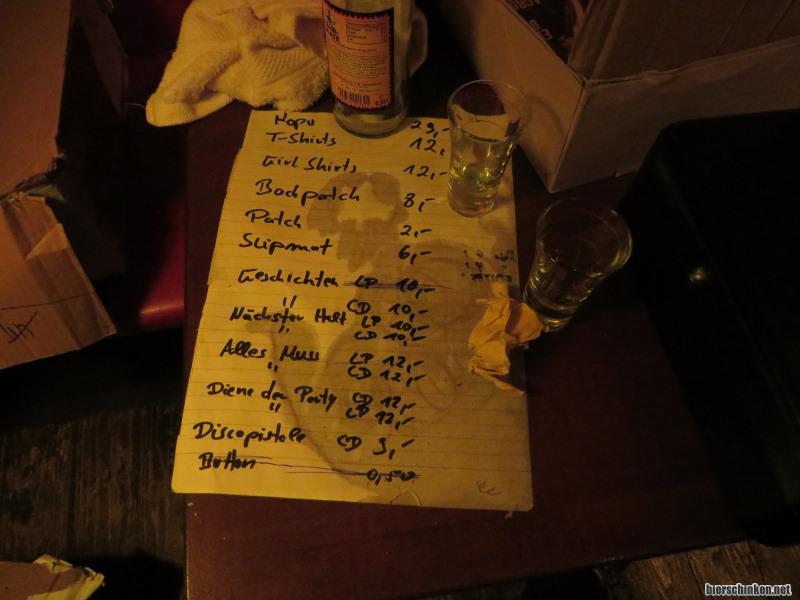 Kapu 29,-
T-Shirts 12,-
Girl Shirts 12,-
Backpatch 8,-
Patch 2,-
Slipmat 6,-
Geschichten LP 10,-
" CD 10,-
Nächster Halt LP 10,-
" CD 10,-
Alles Muss LP 12,-
" CD 12,-
Diene der Party CD 12,-
" LP 12,-
Discopistole CD 3,-
Button 0,50
bierschinken.net